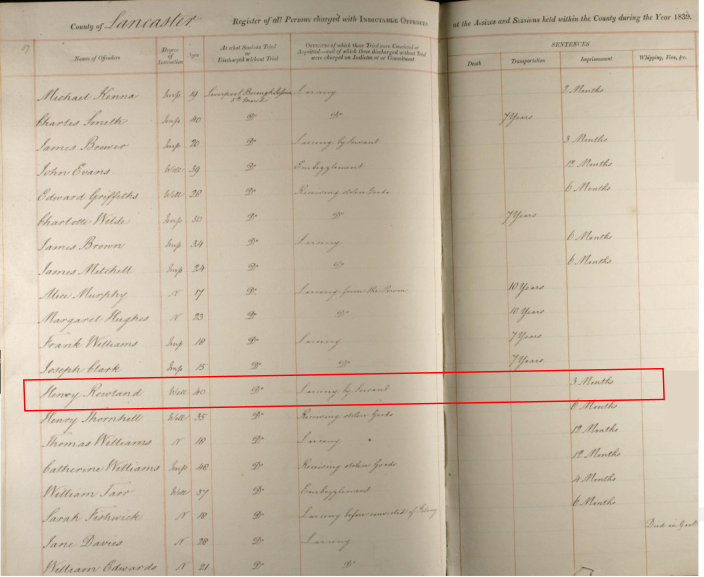 County of Lancaster Register of all Persons charged with INDICTABLE OFFENCES at the Assizes and Sessions held within the County during the Year 1839.
17
Names of Offenders Degree of Instruction Age At what Sessions Tried or Discharged without Trial OFFENCES of which those Tried were Convicted or Acquitted—and of which those Discharged without Trial were charged on Indictment or Commitment SENTENCES
Death Transportation Imprisonment Whipping, Fine, &c.
Michael Kenna Imp 19 Liverpool Borough Larceny Months
Charles Smith Imp 40 Do Do 7 Years
James Brewer Imp 20 Do Larceny by Servant 3 Months
John Evans Well 39 Do Embezzlement 12 Months
Edward Griffiths Well 28 Do Receiving stolen Goods 6 Months
Charlotte Welds Imp 30 Do Do 7 Years
James Brown Imp 34 Do Larceny 6 Months
James Mitchell Imp 24 Do Do 6 Months
Alice Murphy N 17 Do Larceny from the Person 10 Years
Margaret Hughes N 23 Do Do 10 Years
Frank Williams Imp 18 Do Larceny 7 Years
Joseph Clark Imp 15 Do Do 7 Years
Henry Rowland Well 40 Do Larceny by Servant 3 Months
Henry Thornhill Well 35 Do Receiving stolen Goods 6 Months
Thomas Williams N 18 Do Larceny 12 Months
Catherine Williams Imp 46 Do Receiving stolen Goods 12 Months
William Well 37 Do Embezzlement 4 Months
Sarah Fishwick N 18 Do Larceny before convicted of Felony 6 Months
Jane Davies N 28 Do Larceny Died in Gaol
William Edwards N 21 Do Do